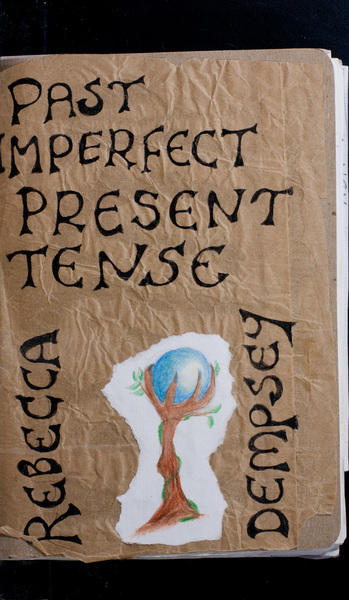 PAST
IMPERFECT
PRESENT
TENSE
REBECCA
DEMPSEY